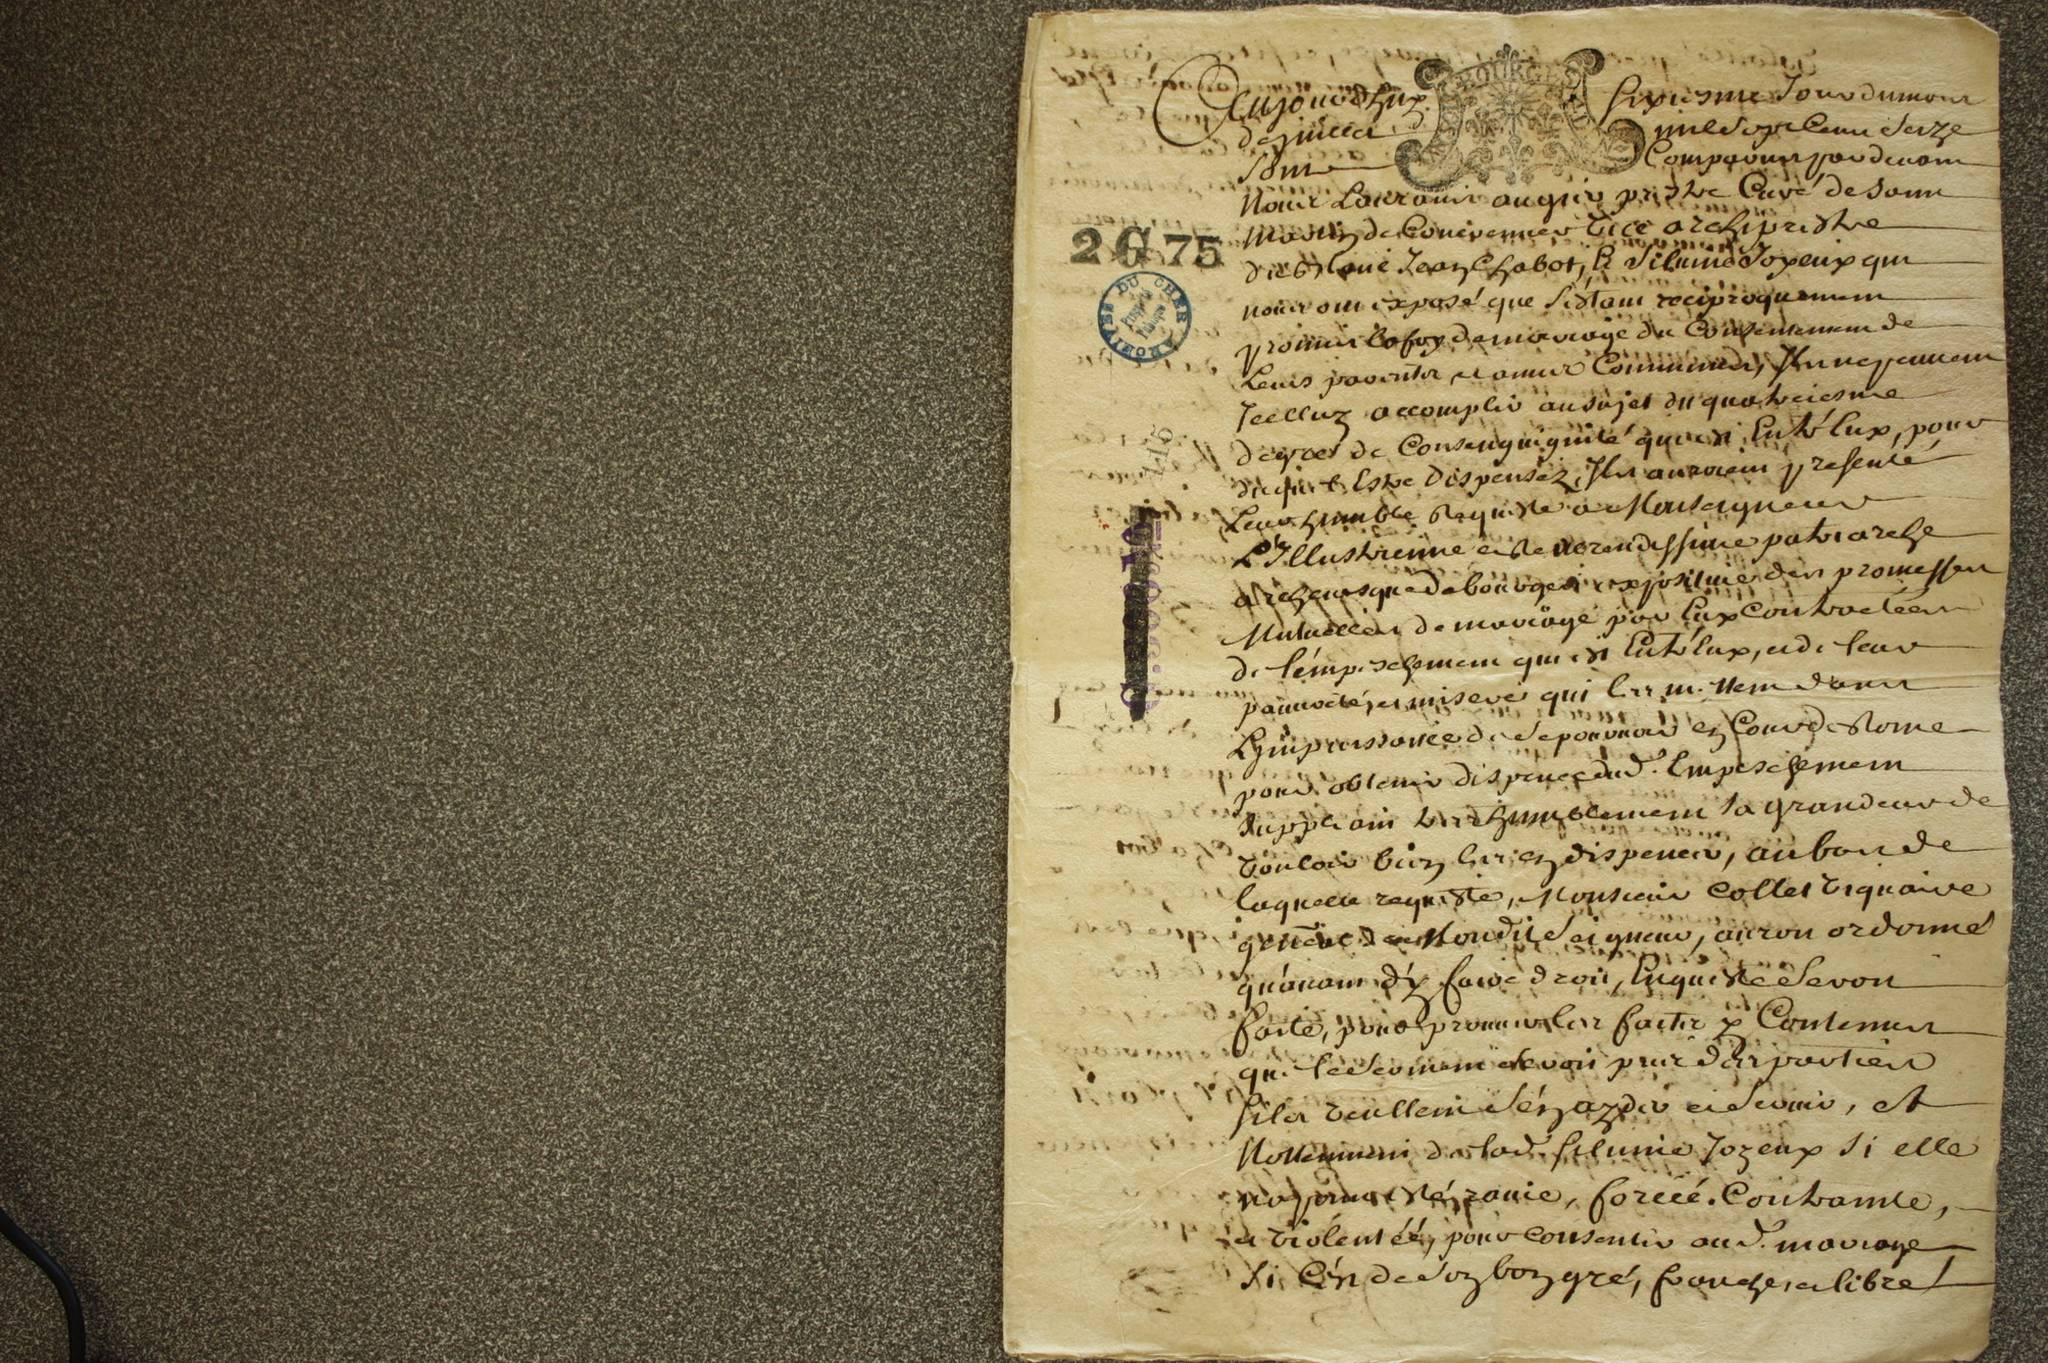 BOURGES
Aujourdhuy sixiesme Jour du mois
de Juillet mil sept cens seize
Sont Comparus par devant
Nous Laurans augier prestre Curé de saint
Martin de vice archiprestre
dud. Jean Chabot, & Silvine Joyeux qui
2 G 75
nous ont exposé que s'estant reciproquement
ARCHIVES DU CHER
promis la foy de mariage du Consentement de
Leurs parents et amis Communs, Ils ne peuvent
Icelluy accomplir au sujet du quatriesme
degré de Consenguignité qui est Entr'Eux, pour
duquel Estre Dispensez, Ils auroient presenté
Leur humble Requeste a Monseigneur
L'Illustrisime et Reverendissime patriarche
archevesque de bourges expositive des promesses
Mutuelles de mariage par Eux Contractées
de l'empeschement qui est Entr'Eux, et de leur
pauvreté, et misere qui les mettent dans
L'impuissance de se pourvoir en Cour de Rome
pour obtenir dispence dud. Empeschement
Suppliant tres humblement sa grandeur de
vouloir bien les en dispencer, au bas de
laquelle requeste, Monsieur Collet viquaire
general de Mondit Seigneur, auroit ordonné
qu'avant d'y faire droit, Enqueste seroit
faite, pour prouver les faits y Contenus
que le serment seroit pris des parties
s'ils veullent s'ezazder et servir, et
Nottemment de lad. silvine Jozeux si elle
na point esté ravie, forcéé. Contrainte,
et violentéé, pour consentir aud. mariage
si C'est de son bon gré, franche, et libre